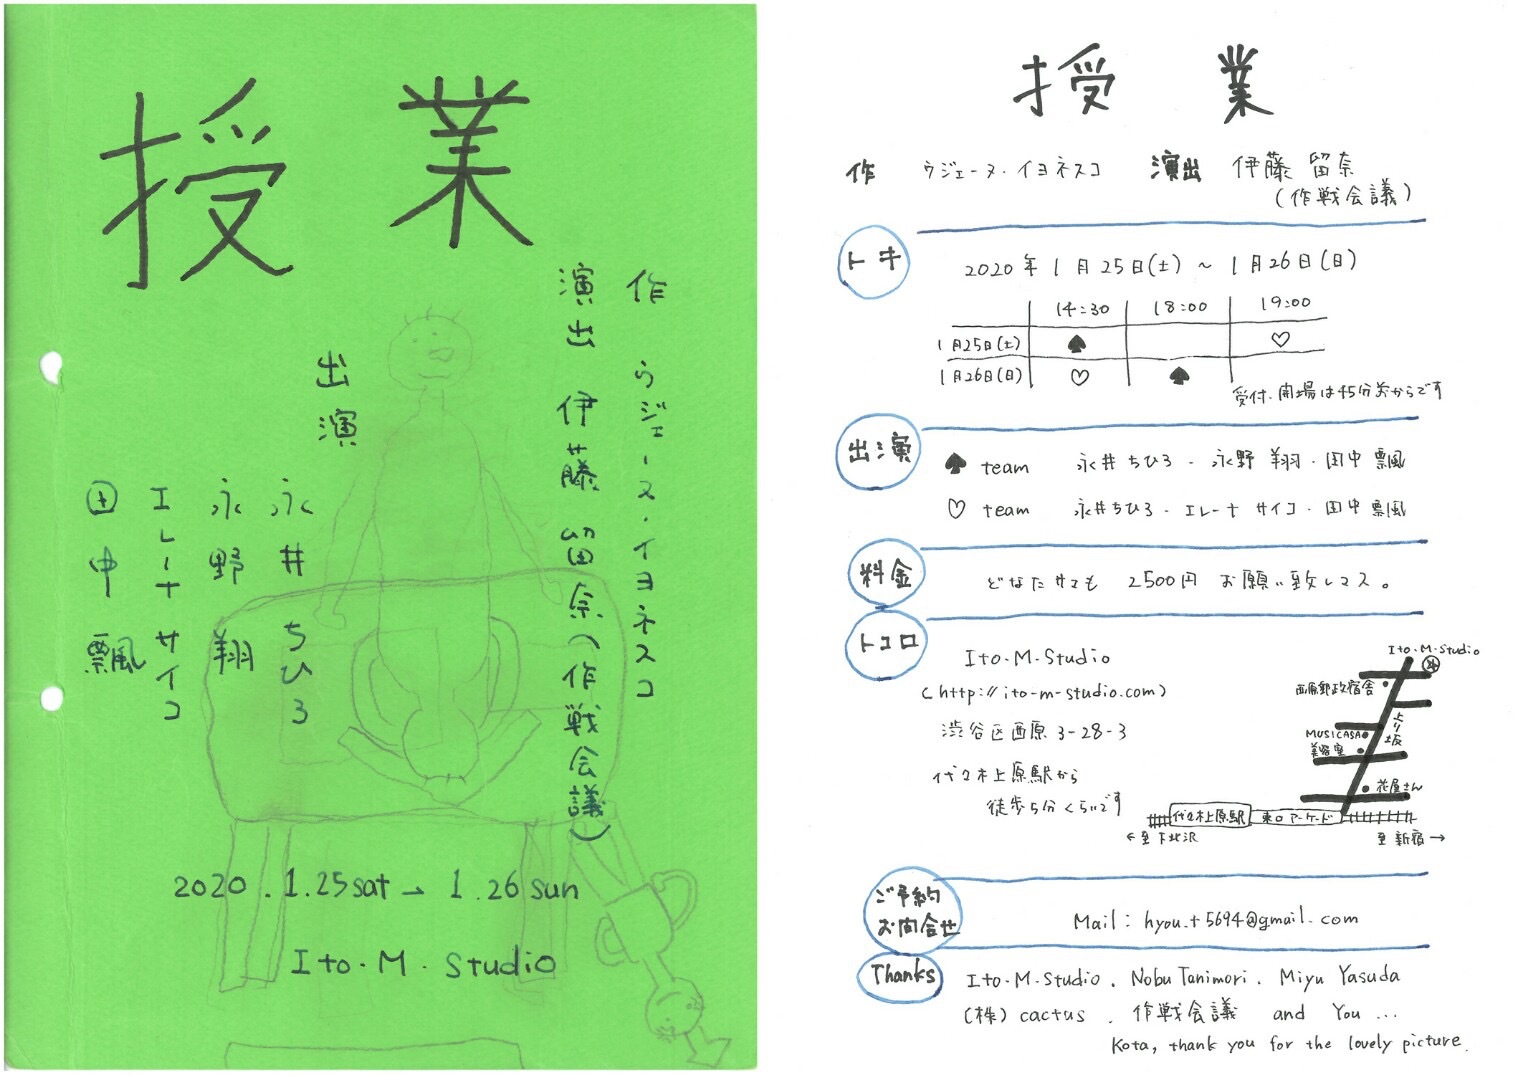 授業
作 ウジェーヌ・イヨネスコ
演出 伊藤 留奈(作戦会議)
出演
永井 ちひろ
永野 翔
エレーナ サイコ
田中 飄
2020.1.25sat→1.26sun
Ito・M・Studio
授業
作 ウジェーヌ・イヨネスコ 演出 伊藤 留奈
(作戦会議)
トキ
2020年1月25日(土)~1月26日(日)
14:30 18:00 19:00
1月25日(土) ♠ ♡
1月26日(日) ♡ ♠
受付・開場は45分前からです
出演
♠ team 永井ちひろ・永野 翔羽・田中 飄風
♡ team 永井ちひろ・エレーナ サイコ・田中 飄風
料金
どなたサマも 2500円 お願い致しマス。
トコロ
Ito・M・Studio
(http://ito-m-studio.com)
渋谷区西原3-28-3
代々木上原駅から
徒歩5分くらいです
Ito・M・Studio
西原郵政宿舎
上り坂
MUSICASA
美容室
花屋さん
代々木上原駅 東口アーケード
←至下北沢 至新宿→
ご予約
お問合せ
Mail: hyou.t5694@gmail.com
Thanks
Ito・M・Studio. Nobu Tanimori. Miyu Yasuda
(株)cactus. 作戦会議 and You...
Kota, thank you for the lovely picture.